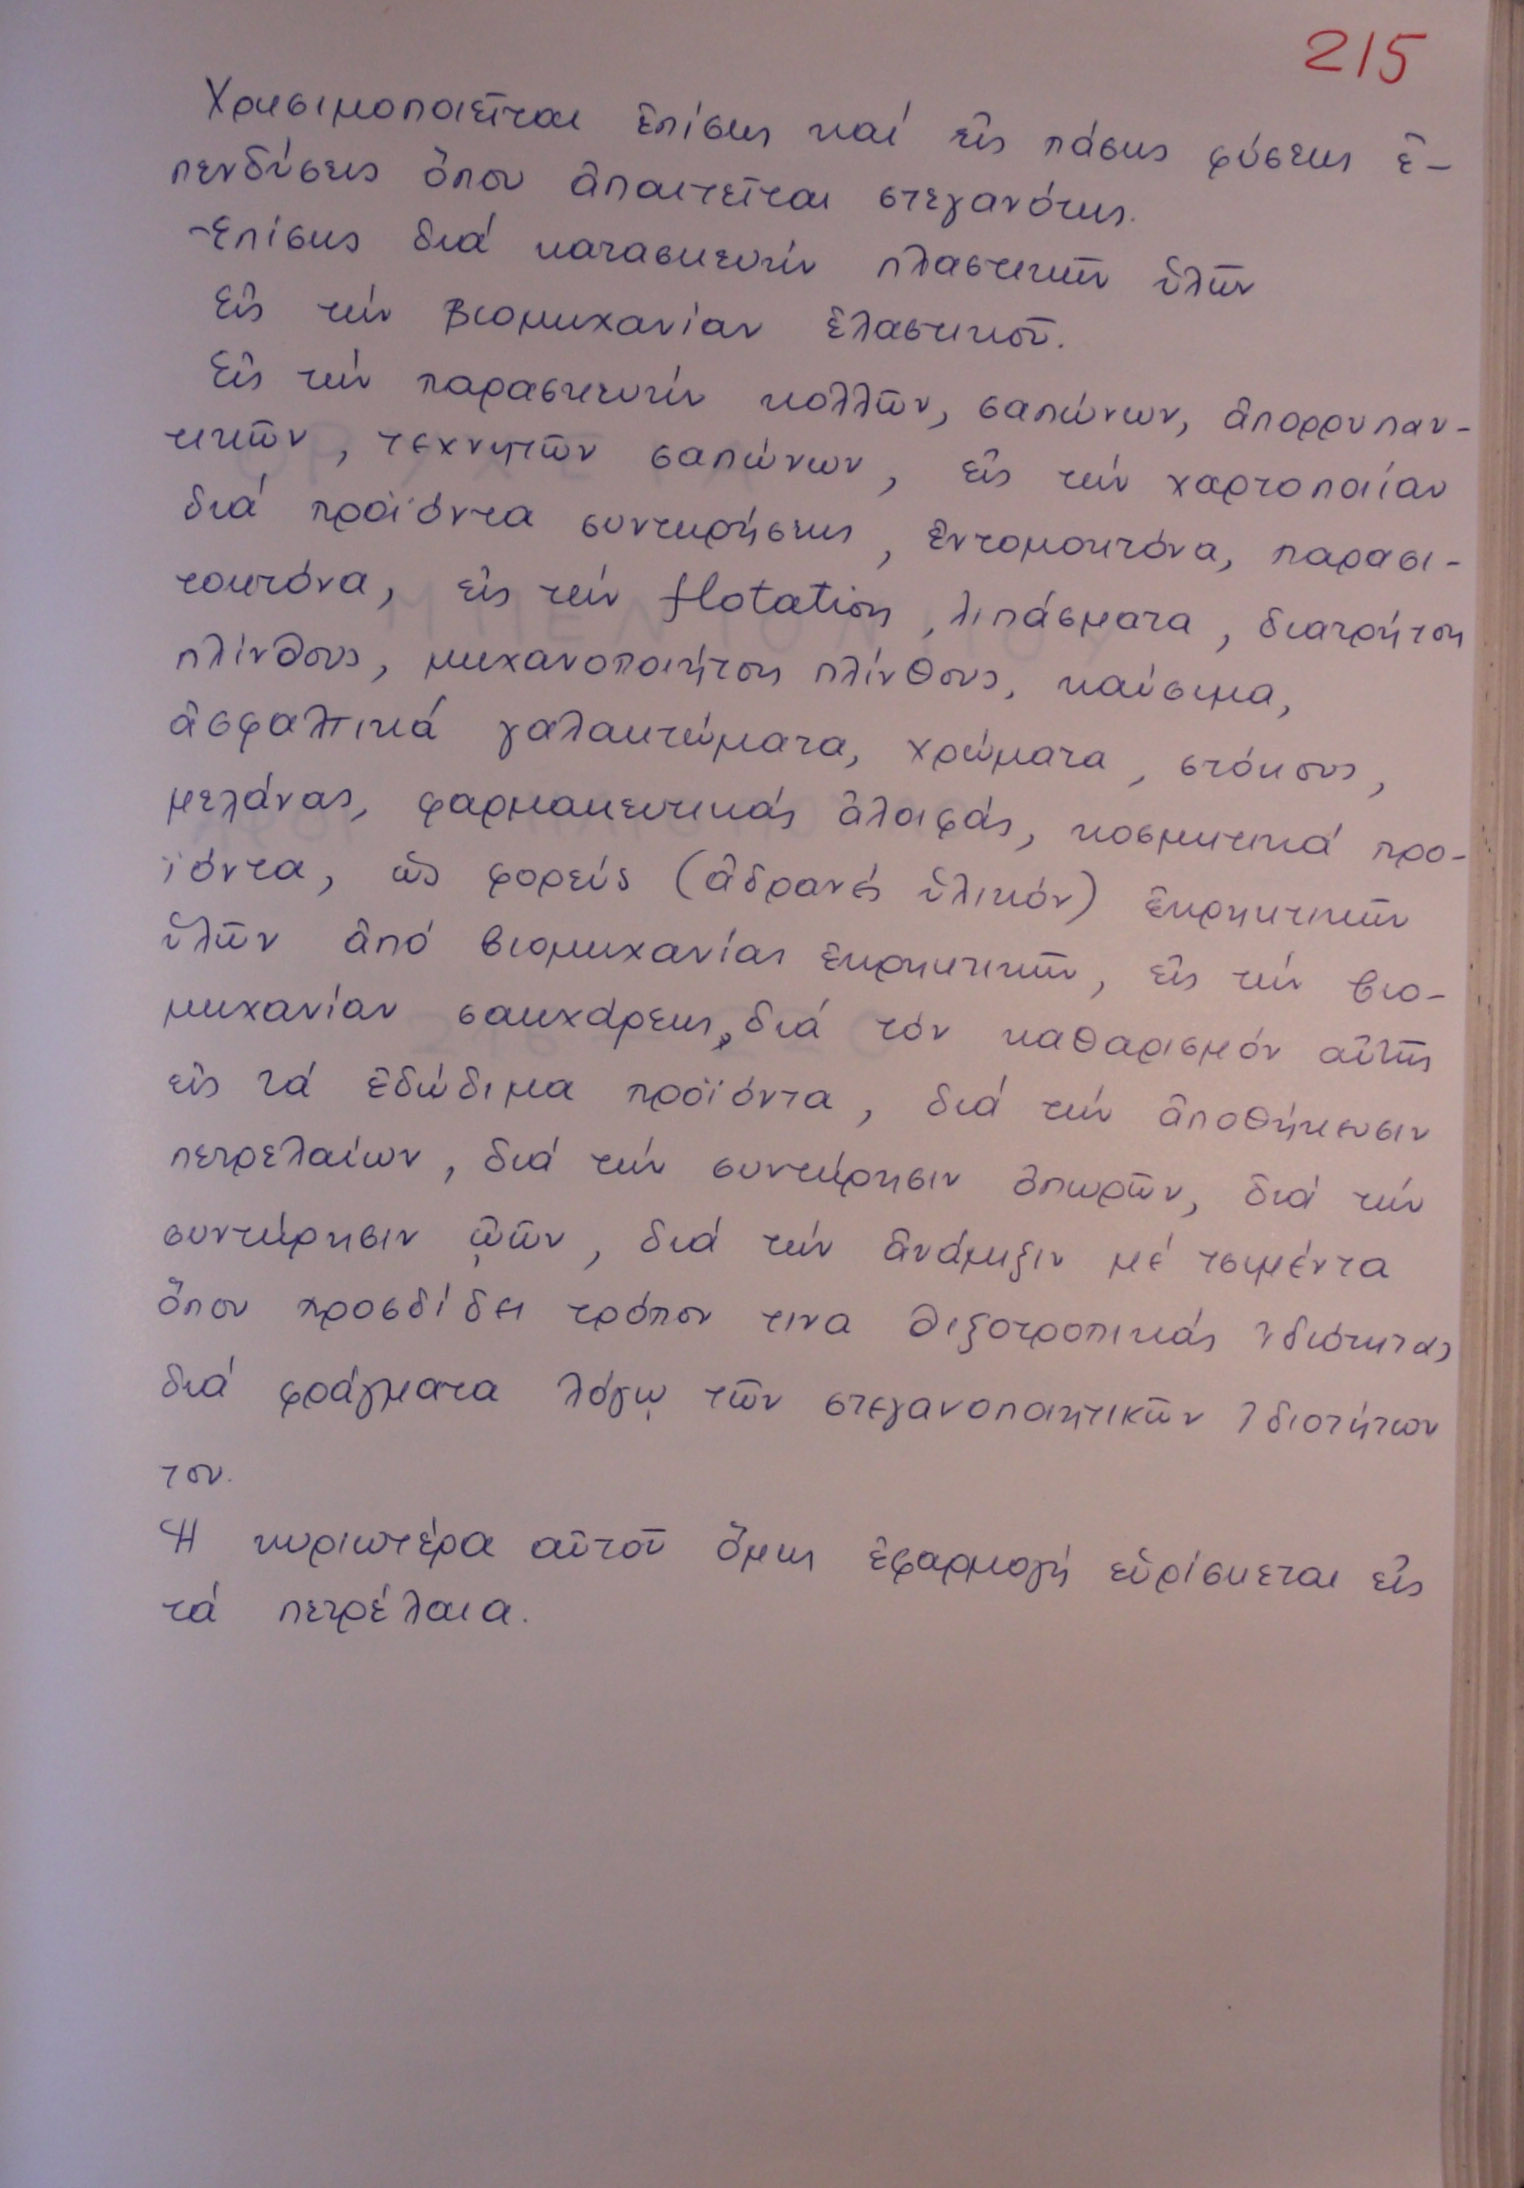 215
Χρησιμοποιεῖται ἐπίσης καί εἰς πάσης φύσεως ἐ-
πενδύσεις ὅπου ἀπαιτεῖται στεγανότης.
Ἐπίσης διά κατασκευήν πλαστικῶν ὑλῶν
Εἰς τήν βιομηχανίαν ἐλαστικοῦ.
Εἰς τήν παρασκευήν κολλῶν, σαπώνων, ἀπορρυπαν-
τικῶν, τεχνητῶν σαπώνων, εἰς τήν χαρτοποιίαν
διά προϊόντα συντηρήσεως, ἐντομοκτόνα, παρασι-
τοκτόνα, εἰς τήν flotation, λιπάσματα, διατρήτους
πλίνθους, μηχανοποιήτους πλίνθους, καύσιμα,
ἀσφαλτικά γαλακτώματα, χρώματα, στόκους,
μελάνας, φαρμακευτικάς ἀλοιφάς, κοσμητικά προ-
ϊόντα, ὡς φορεύς (ἀδρανές ὑλικόν) ἐκρηκτικῶν
ὑλῶν ἀπό βιομηχανίας ἐκρηκτικῶν, εἰς τήν βιο-
μηχανίαν σακχάρεως, διά τόν καθαρισμόν αὐτῆς
εἰς τά ἐδώδιμα προϊόντα, διά τήν ἀποθήκευσιν
πετρελαίων, διά τήν συντήρησιν ὀπωρῶν, διά τήν
συντήρησιν ᾠῶν, διά τήν ἀνάμιξιν μέ τσιμέντα
ὅπου προσδίδει τρόπον τινα θιξοτροπικάς ἰδιότητας
διά φράγματα λόγῳ τῶν στεγανοποιητικῶν ἰδιοτήτων
του.
Ἡ κυριωτέρα αὐτοῦ ὅμως ἐφαρμογή εὑρίσκεται εἰς
τά πετρέλαια.